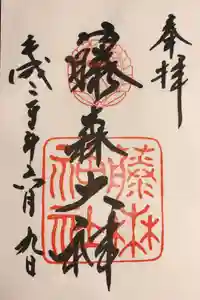 奉拝
藤森大神
藤森
神社
平成二十年六月九日